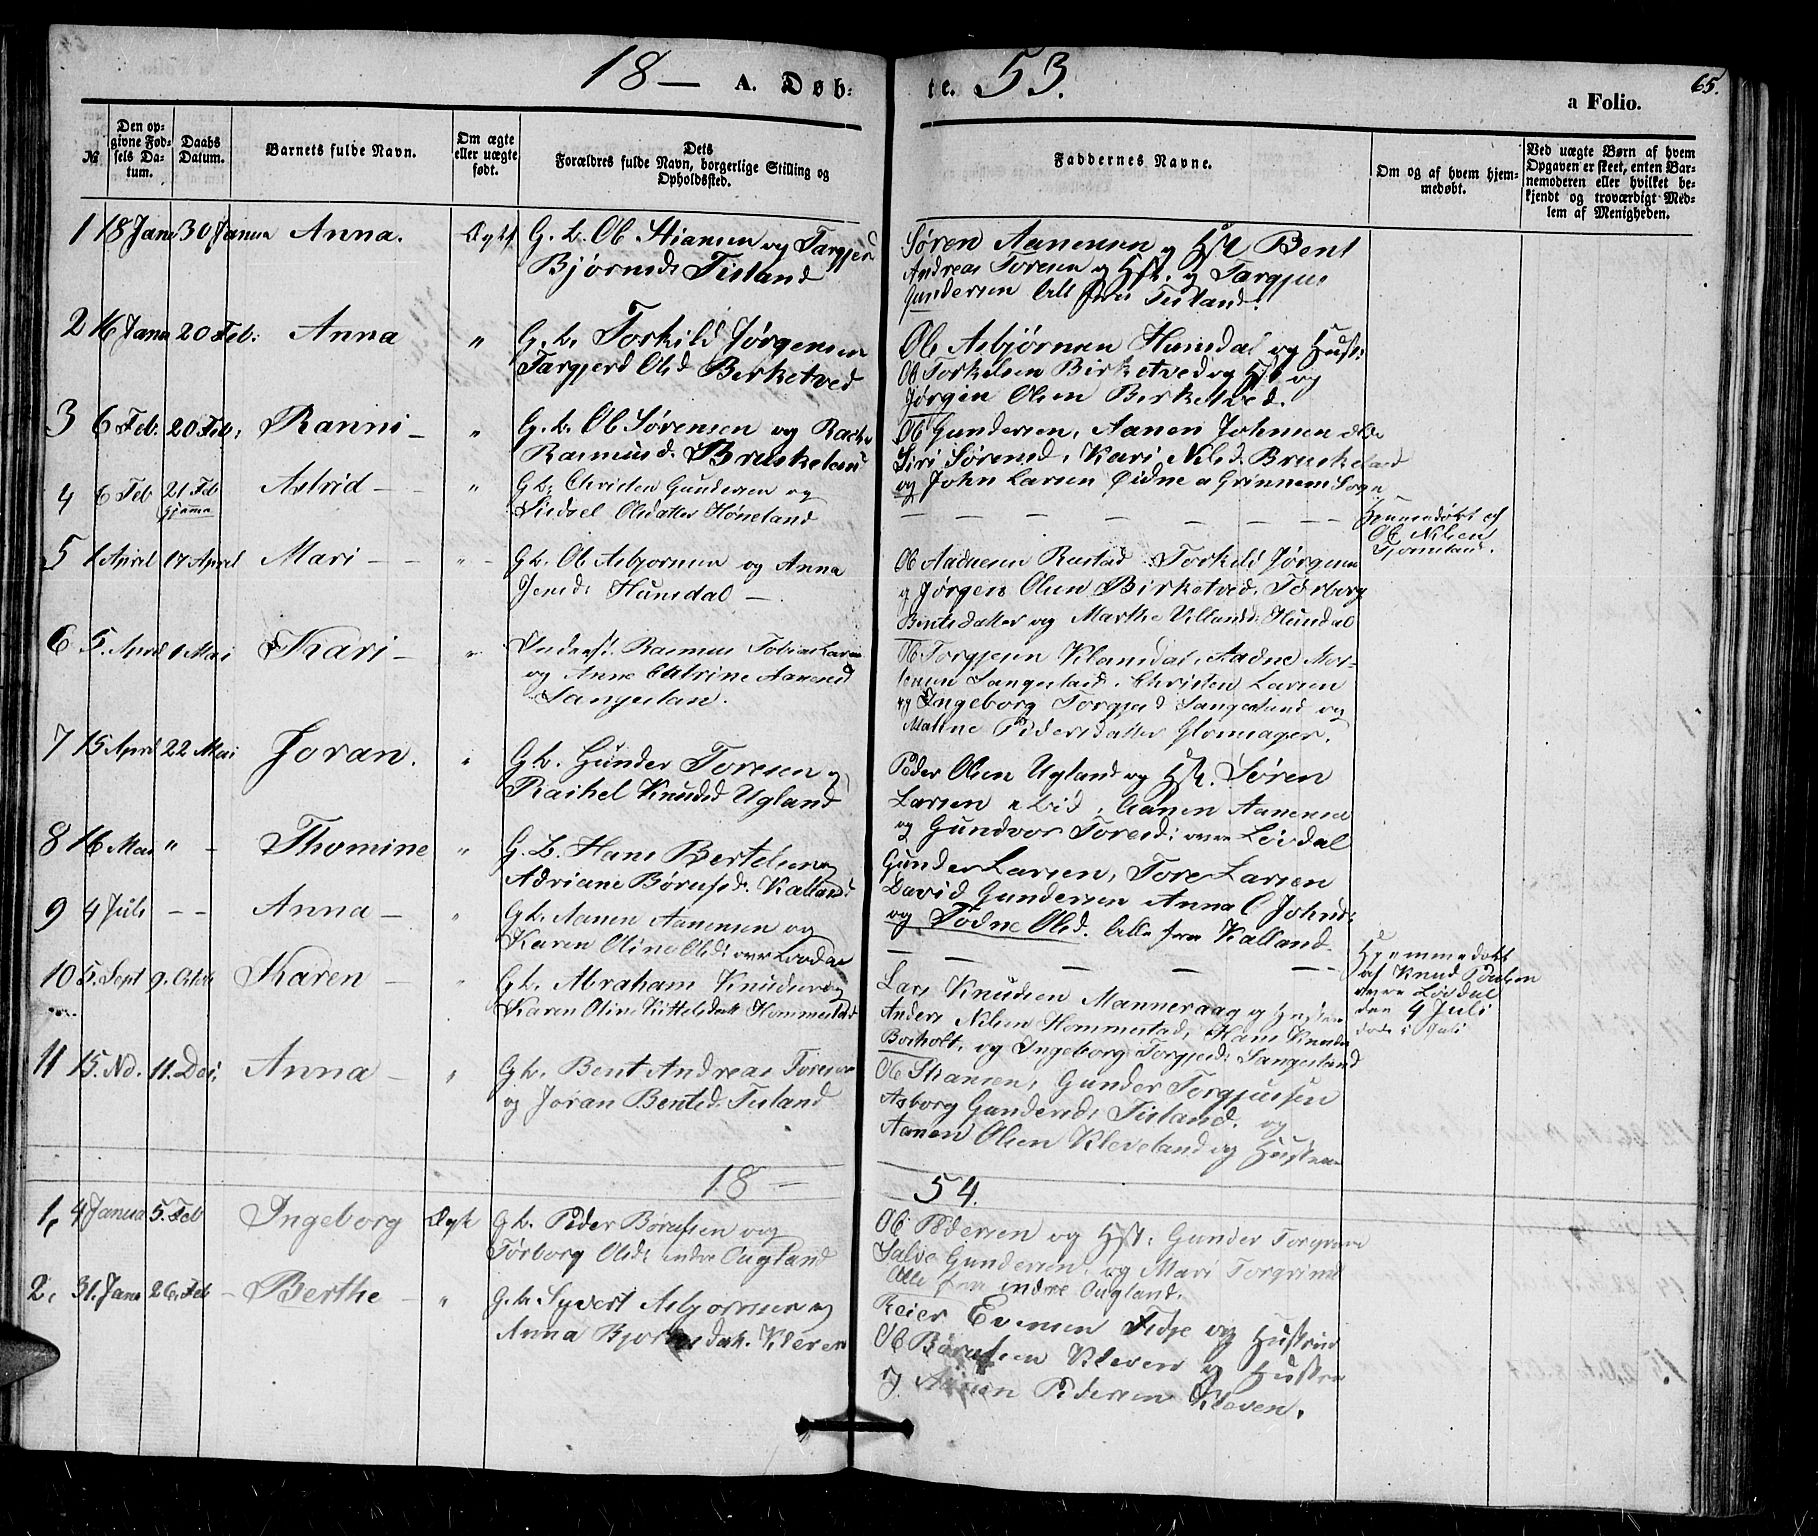 18 — A. Døb- te. 53.
a Folio. 65.
№
Den op-
givne Fød-
sels Da-
tum.
Daabs
Datum.
Barnets fulde Navn.
Om ægte
eller uægte
født.
Dets
Forældres fulde Navn, borgerlige Stilling og
Opholdssted.
Faddernes Navne.
Om og af hvem hjem-
medøbt.
Ved uægte Børn af hvem
Opgaven er skeet, enten Bar-
nemoderen eller hvilket be-
kjendt og troværdigt Med-
lem af Menigheden.
1 18 Janu 30 Janua Anna. Ægte
G. b. Ole Stiansen og Targjerd
Bjørnsd: Tisland
Søren Aanensen og Hst. Bent
Andreas Toresen og Hst. og Targjus
Gundersen alle fra Tisland.
2 16 Janu 20 Feb: Anna "
G. b. Torkild Jørgensen
Targjerd Olsd Birketved
Ole Asbjørnsen Humdal og Hustr:
Ole Torkelsen Birketved og Hst og
Jørgen Olsen Birketved.
3 6 Feb. 20 Feb: Ranni — "
G. b. Ole Sørensen og Rachel
Rasmusd. Bruskeland
Ole Gundersen, Aanen Johnsen
Siri Sørensd, Kari Nilsd. Bruskeland
og John Larsen Eidne a Grimnem Sogn
4 6 Feb 21 Feb Astrid — "
hjemme
Gb. Christen Gundersen og
Sidsel Olsdatter Høneland
— — — — — —
Hjemmedøbt af
Ole Nilsen
5 1 April 17 April Mari — — "
Gb. Ole Asbjørnsen og Anna
Jensd: Humdal —
Ole Aadnesen Rustad Torkild Jørgensen
og Jørgen Olsen Birketved, Torborg
Bentsdatter og Marthe Villandsd: Humdal
6 5. April 1 Mai Kari — "
Rasmus Tobias Larsen
og Anne Catrine Aanensd
Sangestan.
Ole Torgjesen Klamdal, Aadne Mor-
tensen Sangestad, Christen Larsen
og Ingeborg Torgjusd Sangesland og
Maline Pedersdatter
7 15 April 22 Mai Joran. "
Gb. Gunder Toresen og
Rachel Knudsd Ugland
Peder Olsen Ugland og Hst. Søren
Larsen Lid, Aanen Aanensen
og Gundvor Toresd: øvre Løvdal
8 16 Mai " — Thomine "
G. b. Hans Bertelsen og
Adriane Børufsd. Kalland
Gunder Larsen, Tore Larsen
David Gundersen Anna C Johnsd:
og Todne Olsd. alle fra Kalland
9 4 Juli — — Anna — "
Gb. Aanen Aanensen og
Karen Oline Olsd: øvre Løvdal
— — — — —
Hjemmedøbt
af Knud Poulsen
øvre Løvdal
den 4 Juli
døde i Juli
10 5. Sept 9. Octob Karen — "
Gb. Abraham Knudsen og
Karen Oline Kittelsdatt Hommestad
Lars Knudsen Manneraag og Hustru
Anders Nilsen Hommestad, Hans Knudsen
Borholt, og Ingeborg Torgjusd: Sangesland
11 15. No. 11. Dec. Anna — "
Gb. Bent Andreas Toresen
og Joran Bentsd. Tisland
Ole Stiansen, Gunder Torgjussen
Asborg Gundersd: Tisland. og
Aanen Olsen Kleveland og Hustrue
18 — 54.
1, 4 Janua 5. Feb Ingeborg Ægte
Gb. Peder Børufsen og
Torborg Olsd: indre Ougland
Ole Pedersen og Hst: Gunder Torgrims
Salve Gundersen, og Mari Torgrimsd
Alle fra indre Ougland.
2, 31. Janu 26. Feb — Berthe — "
G. b. Syvert Asbjørnsen og
Anna Bjornsdatt. Kleven
Reier Evensen Fidje og Hustrue
Ole Børufsen Kleven og Hustru
Pedersen Kleven.